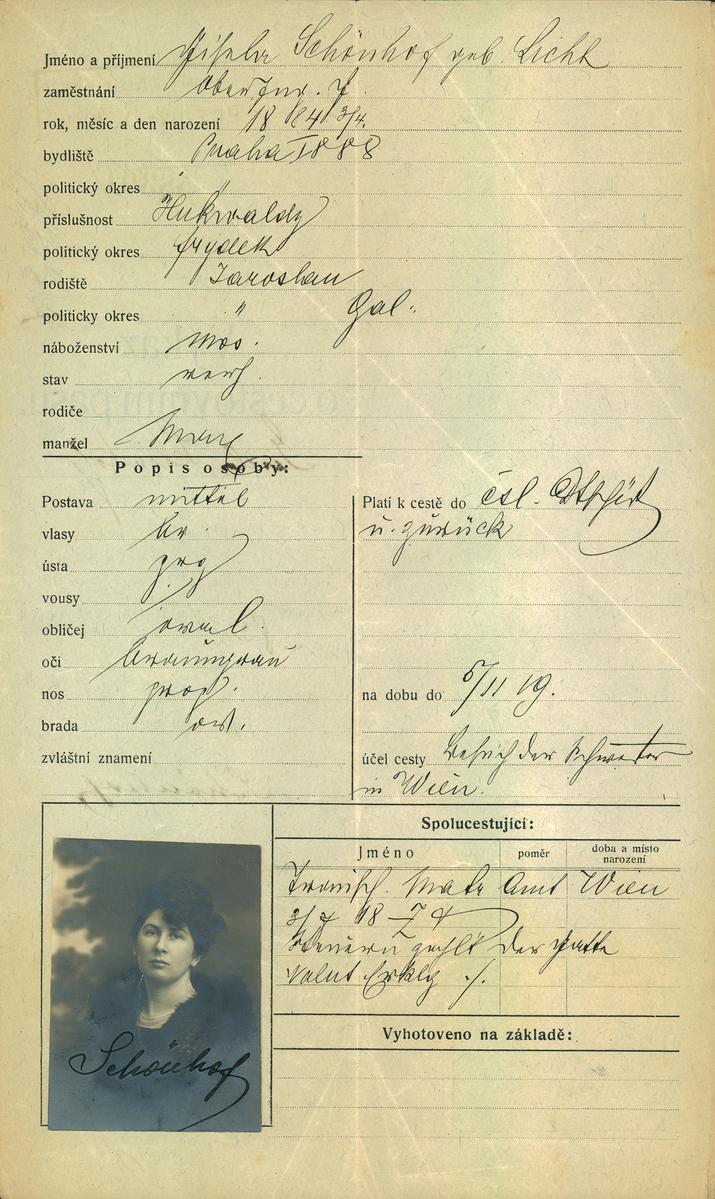 Jméno a příjmení Gisela Schönhof geb. Licht
zaměstnání Ober Ing.
rok, měsíc a den narození 18
bydliště Praha I 888
politický okres "
příslušnost Hukvaldy
politický okres Frýdek
rodiště Jaroslau
politicky okres " Gal.
náboženství mos.
stav verh.
rodiče
manžel
Popis osoby:
Postava mittel
vlasy br.
ústa prop
vousy /
obličej oval.
oči braungrau
nos prop.
brada ov.
zvláštní znamení
Platí k cestě do čsl.
u. zurück
na dobu do 5/11 19.
účel cesty Besuch der Schwester
in Wien.
Spolucestující:
Jméno poměr doba a místo narození
Amt Wien
18
zahlt der Gatte
Valut Erklg ./.
Vyhotoveno na základě:
Schönhof